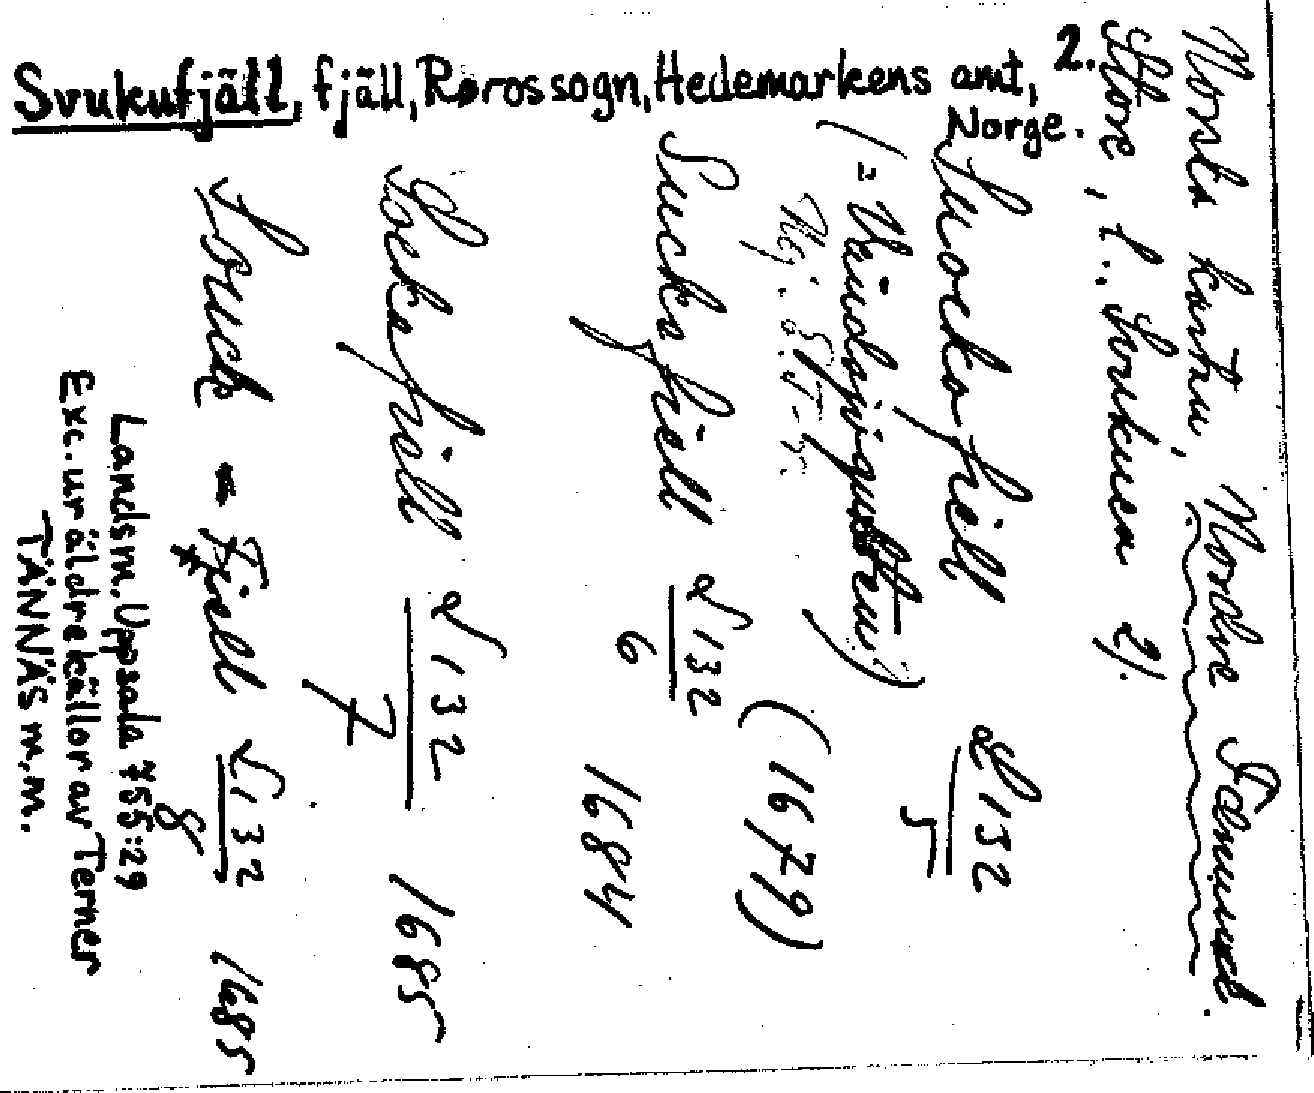 Svukufjäll, fjäll, Røros sogn, Hedemarkens amt, 2.
Norge.
Norska kartan, Nordre Femund.
Store, L. Svukuen 2).
Suockofiell L 132
5
(=
Nej. S/T-n.
(1679)
Suckofiell L 132
6
1684
Sockofiäll L 132
7
1685
Souck = Fjell L 132
8
1685
Landsm. Uppsala 755:29
Exc. ur äldre källor av Terner
TÄNNÄS m.m.